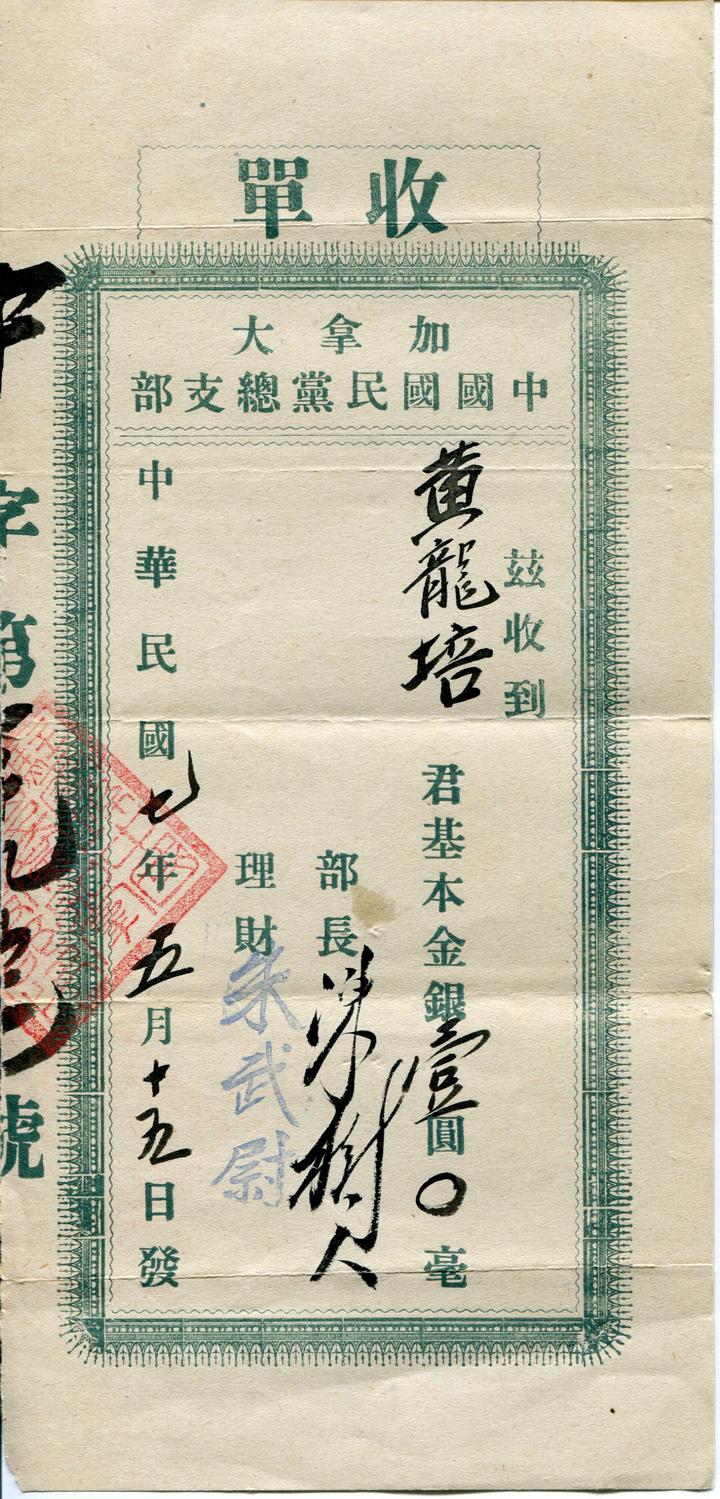 收單
加拿大
中國國民黨總支部
茲收到
黃龍培君基本金銀壹圓〇毫
部長陳樹人
理財朱武尉
中華民國七年五月十五日發
字第
號